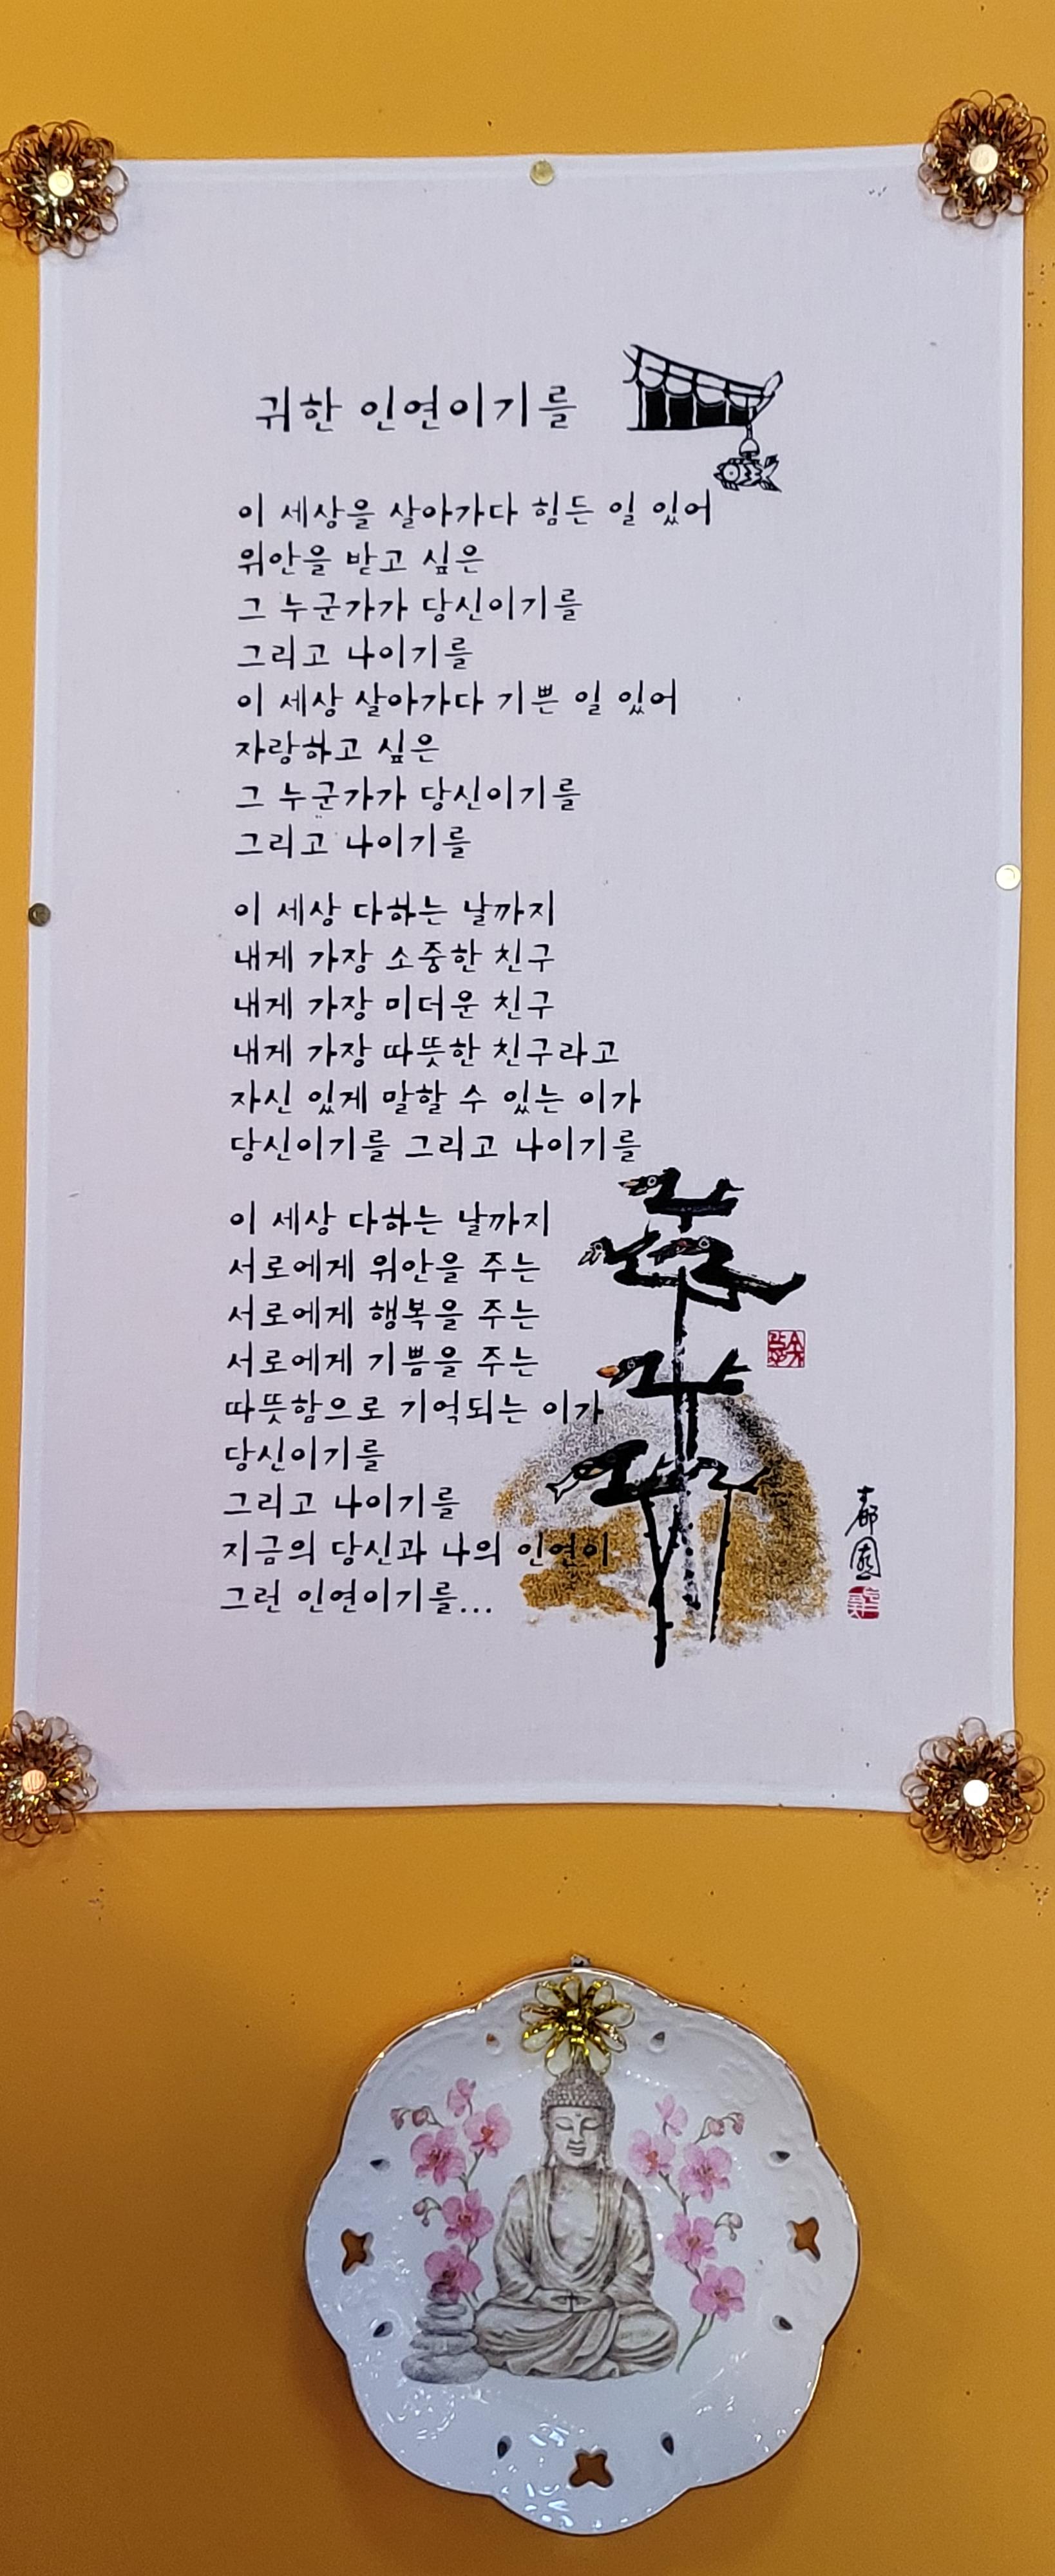 귀한 인연이기를
이 세상을 살아가다 힘든 일 있어
위안을 받고 싶은
그 누군가가 당신이기를
그리고 나이기를
이 세상 살아가다 기쁜 일 있어
자랑하고 싶은
그 누군가가 당신이기를
그리고 나이기를
이 세상 다하는 날까지
내게 가장 소중한 친구
내게 가장 미더운 친구
내게 가장 따뜻한 친구라고
자신 있게 말할 수 있는 이가
당신이기를 그리고 나이기를
이 세상 다하는 날까지
서로에게 위안을 주는
서로에게 행복을 주는
서로에게 기쁨을 주는
따뜻함으로 기억되는 이가
당신이기를
그리고 나이기를
지금의 당신과 나의 인연이
그런 인연이기를...